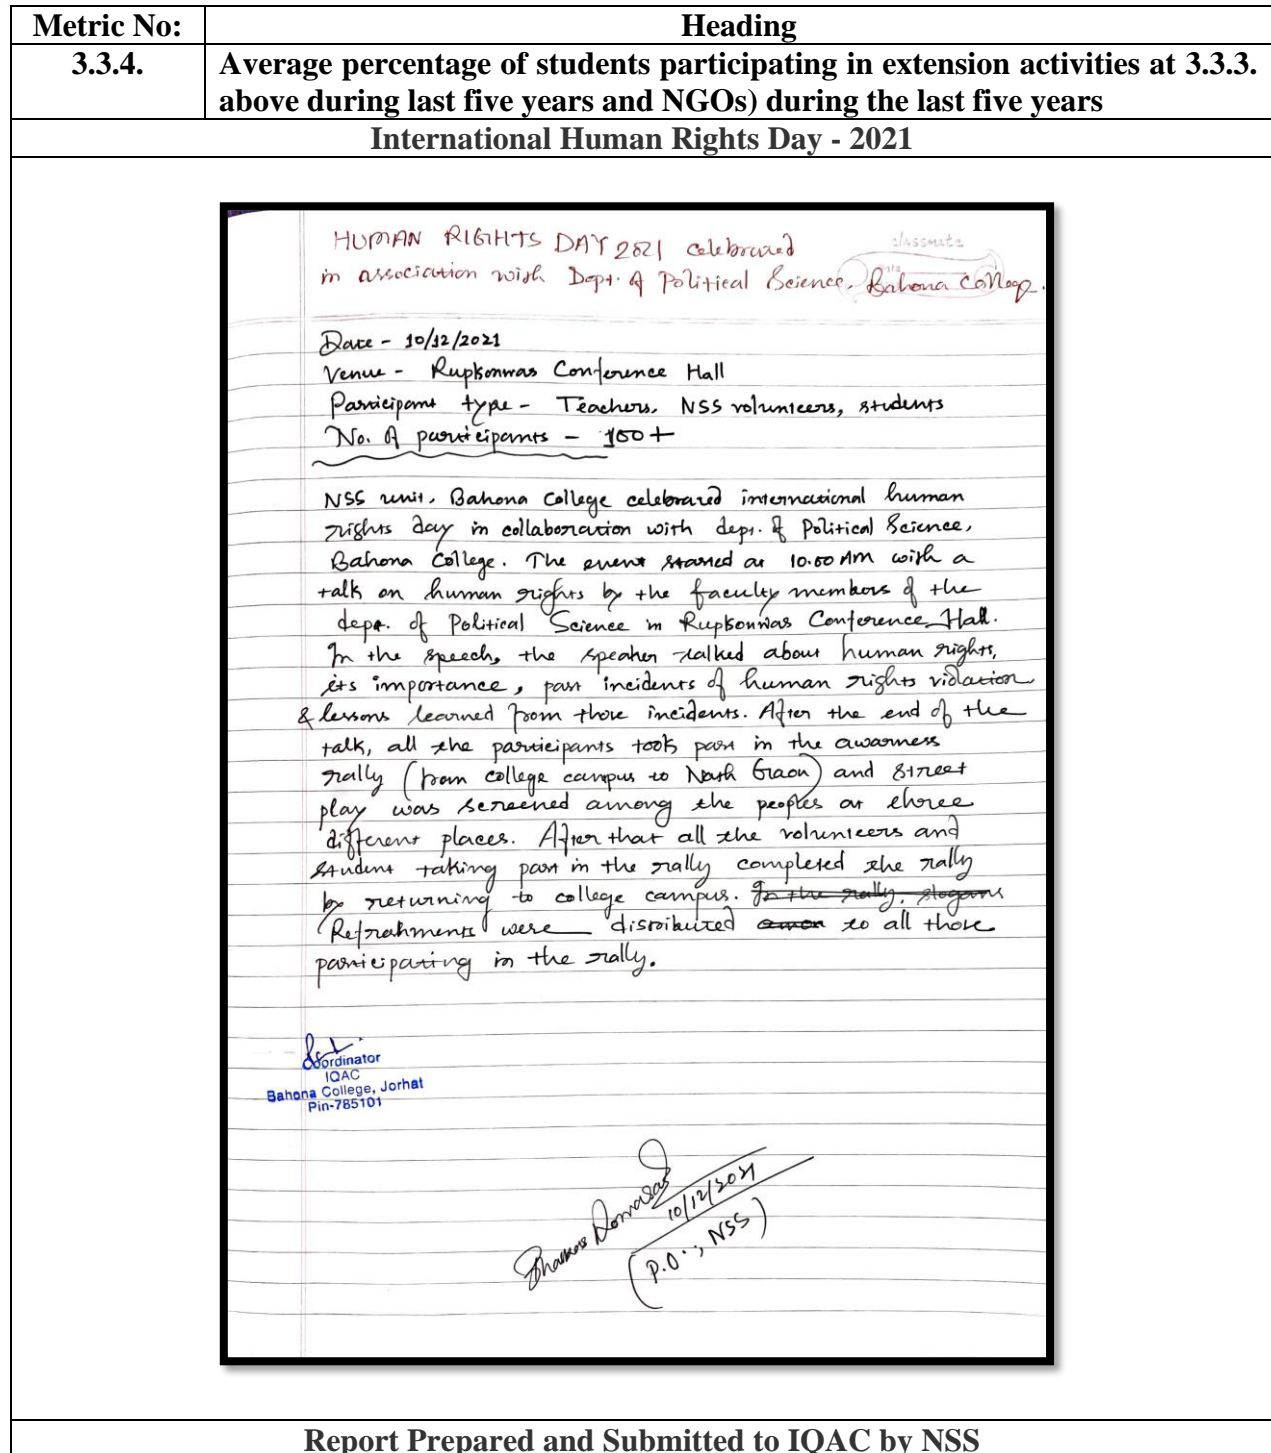 Metric No:
Heading
3.3.4.
Average percentage of students participating in extension activities at 3.3.3.
above during last five years and NGOs) during the last five years
International Human Rights Day - 2021
classmate
HUMAN RIGHTS DAY 2021 celebrated
in association with Dept. of Political Science, Bahona College.
Date - 10/12/2021
Venue - Rupkonwar Conference Hall
Participant type - Teachers, NSS volunteers, students
No. of participants - 100+
NSS unit, Bahona College celebrated international human
rights day in collaboration with dept. of Political Science,
Bahona College. The event started at 10.00 AM with a
talk on human rights by the faculty members of the
dept. of Political Science in Rupkonwar Conference Hall.
In the speech, the speaker talked about human rights,
its importance, past incidents of human rights violation
& lessons learned from those incidents. After the end of the
talk, all the participants took part in the awarness
rally (from college campus to Gaon) and street
play was screened among the peoples at three
different places. After that all the volunteers and
student taking part in the rally completed the rally
by returning to college campus. In the rally, slogans
Refrahments were distributed to all those
participating in the rally.
Coordinator
IQAC
Bahona College, Jorhat
Pin-785101
10/12/2021
(P.O., NSS)
Report Prepared and Submitted to IQAC by NSS